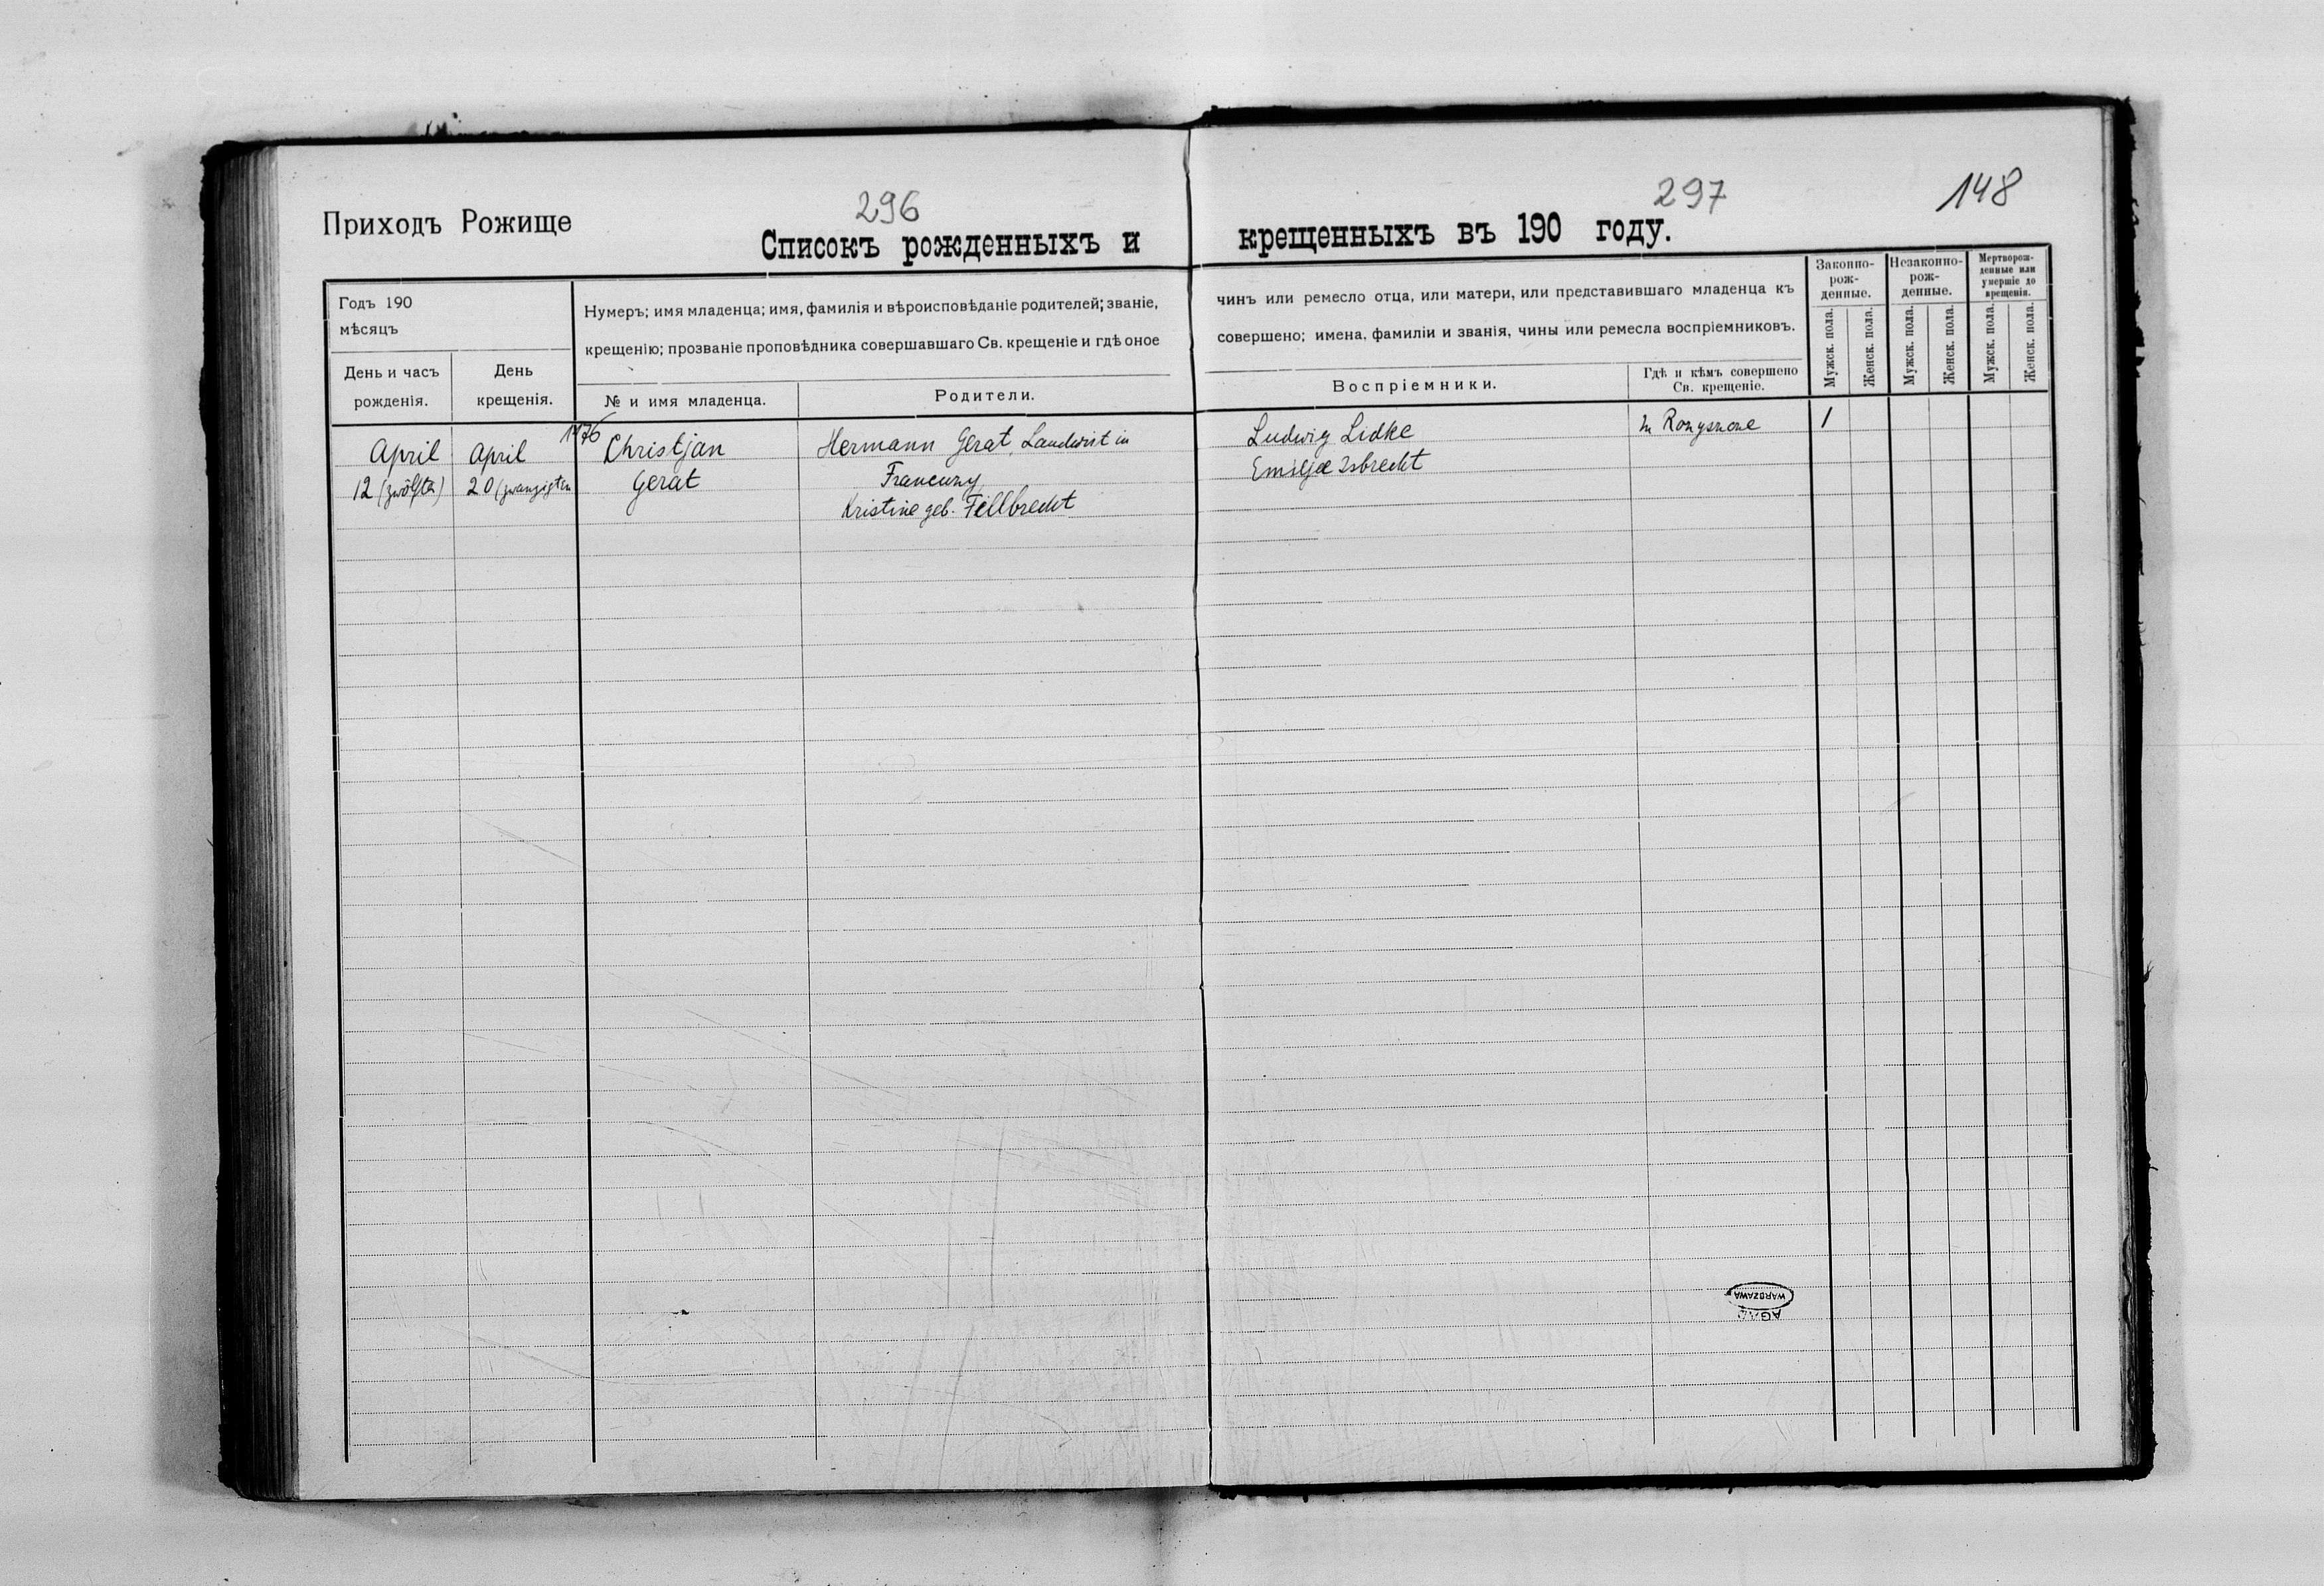 296
297
148
Приходъ Рожище
Списокъ рожденныхъ и крещенныхъ въ 190 году.
Годъ 190
мѣсяцъ
День и часъ
рожденія.
День
крещенія.
Нумеръ; имя младенца; имя, фамилія и вѣроисповѣданіе родителей; званіе,
крещенію; прозваніе проповѣдника совершавшаго Св. крещеніе и гдѣ оное
№ и имя младенца.
Родители.
чинъ или ремесло отца, или матери, или представившаго младенца къ
совершено; имена, фамиліи и званія, чины или ремесла воспріемниковъ.
Воспріемники.
Гдѣ и кѣмъ совершено
Св. крещеніе.
Законно-
рож-
денные.
Незаконно-
рож-
денные.
Мертворож-
денные или
умершіе до
крещенія.
Мужск. пола.
Женск. пола.
Мужск. пола.
Женск. пола.
Мужск. пола.
Женск. пола.
April
12 (zwölften)
April
20 (zwanzigsten
Christjan
Gerat
Hermann Gerat, Landwirt in
Francuzy,
Kristine geb. Fellbrecht
Ludwig Lidke
Emilje Isbrecht
In
1
WARSZAWA
AGAD